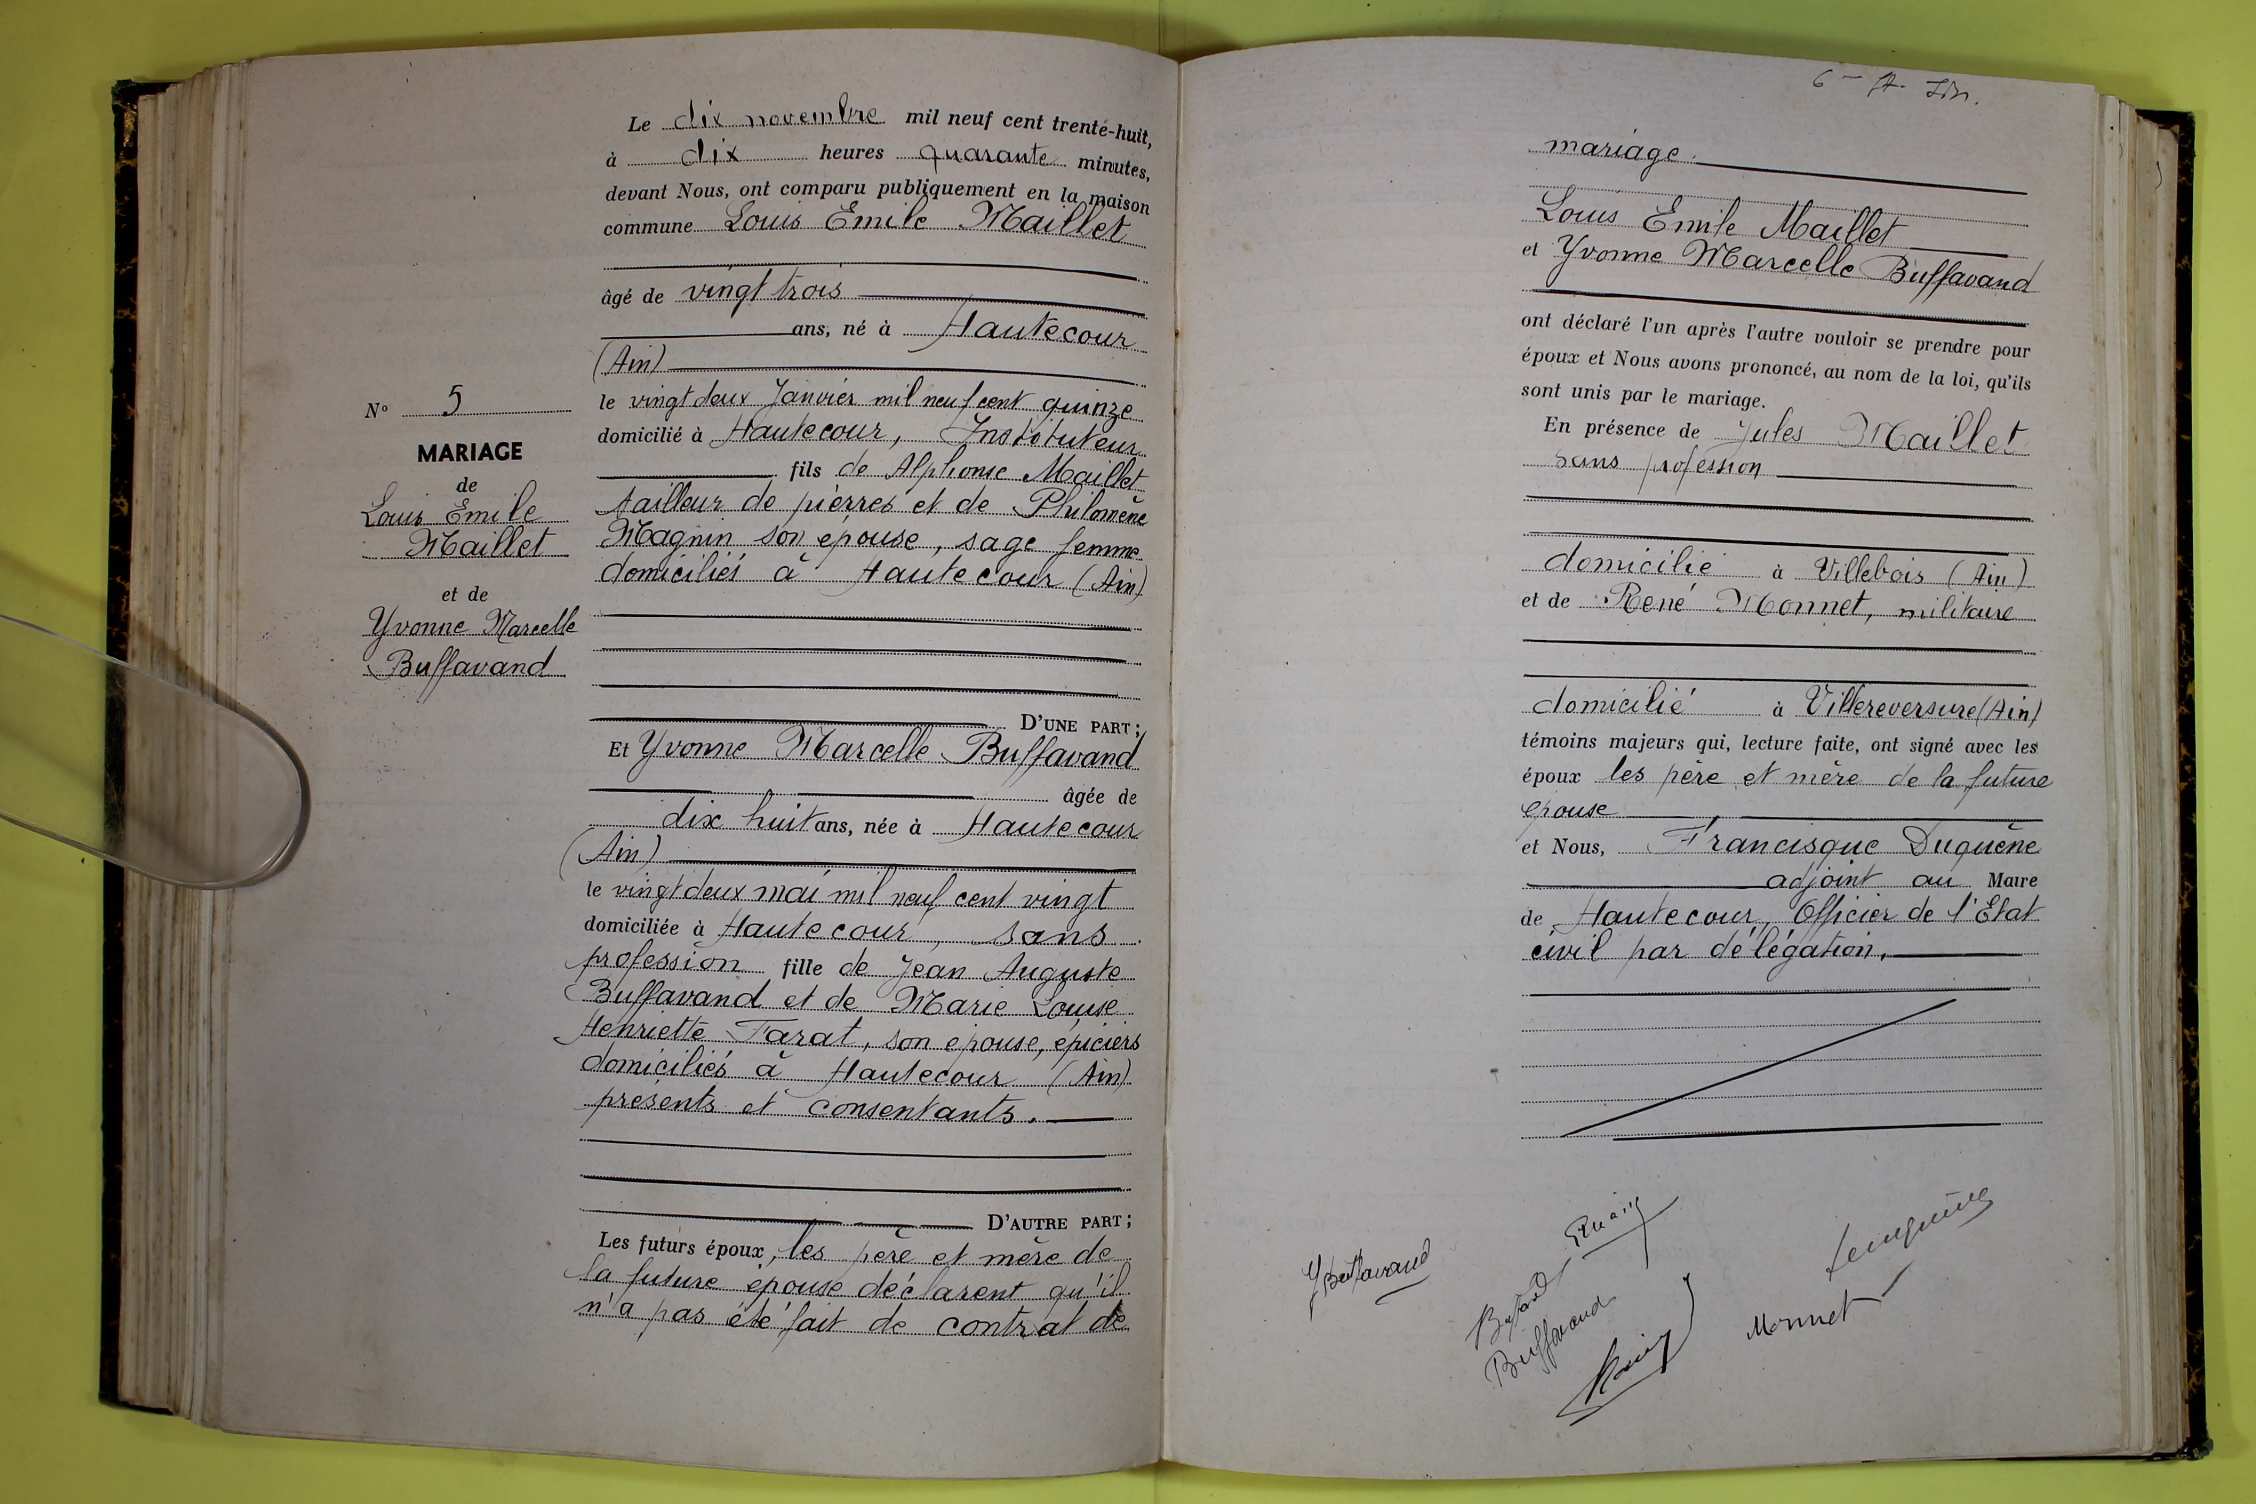 Le dix novembre mil neuf cent trente-huit,
à dix heures quarante minutes,
devant Nous, ont comparu publiquement en la maison
commune Louis Emile Maillet
âgé de vingt trois
ans, né à Hautecour
(Ain)
le vingt deux Janvier mil neuf cent quinze
domicilié à Hautecour, Instituteur
fils de Alphonse Maillet
tailleur de pierres et de Philomène
Magnin son épouse, sage femme
domiciliés à Hautecour (Ain)
D'UNE PART;
Et Yvonne Marcelle Buffavand
âgée de
dix huit ans, née à Hautecour
(Ain)
le vingt deux mai mil neuf cent vingt
domiciliée à Hautecour, sans
profession fille de Jean Auguste
Buffavand et de Marie Louise
Henriette Farat, son épouse, épiciers
domiciliés à Hautecour (Ain)
présents et consentants.
D'AUTRE PART;
Les futurs époux, les père et mère de
la future épouse déclarent qu'il
n'a pas été fait de contrat de
N° 5
MARIAGE
de
Louis Emile
Maillet
et de
Yvonne Marcelle
Buffavand
mariage.
Louis Emile Maillet
et Yvonne Marcelle Buffavand
ont déclaré l'un après l'autre vouloir se prendre pour
époux et Nous avons prononcé, au nom de la loi, qu'ils
sont unis par le mariage.
En présence de Jules Maillet
sans profession
domicilié à Villebois (Ain)
et de René Monnet, militaire
domicilié à Villereversure (Ain)
témoins majeurs qui, lecture faite, ont signé avec les
époux les père et mère de la future
épouse
et Nous, Francisque Duquène
adjoint au Maire
de Hautecour, Officier de l'Etat
civil par délégation.
Y Buffavand
Buffavand
Monnet